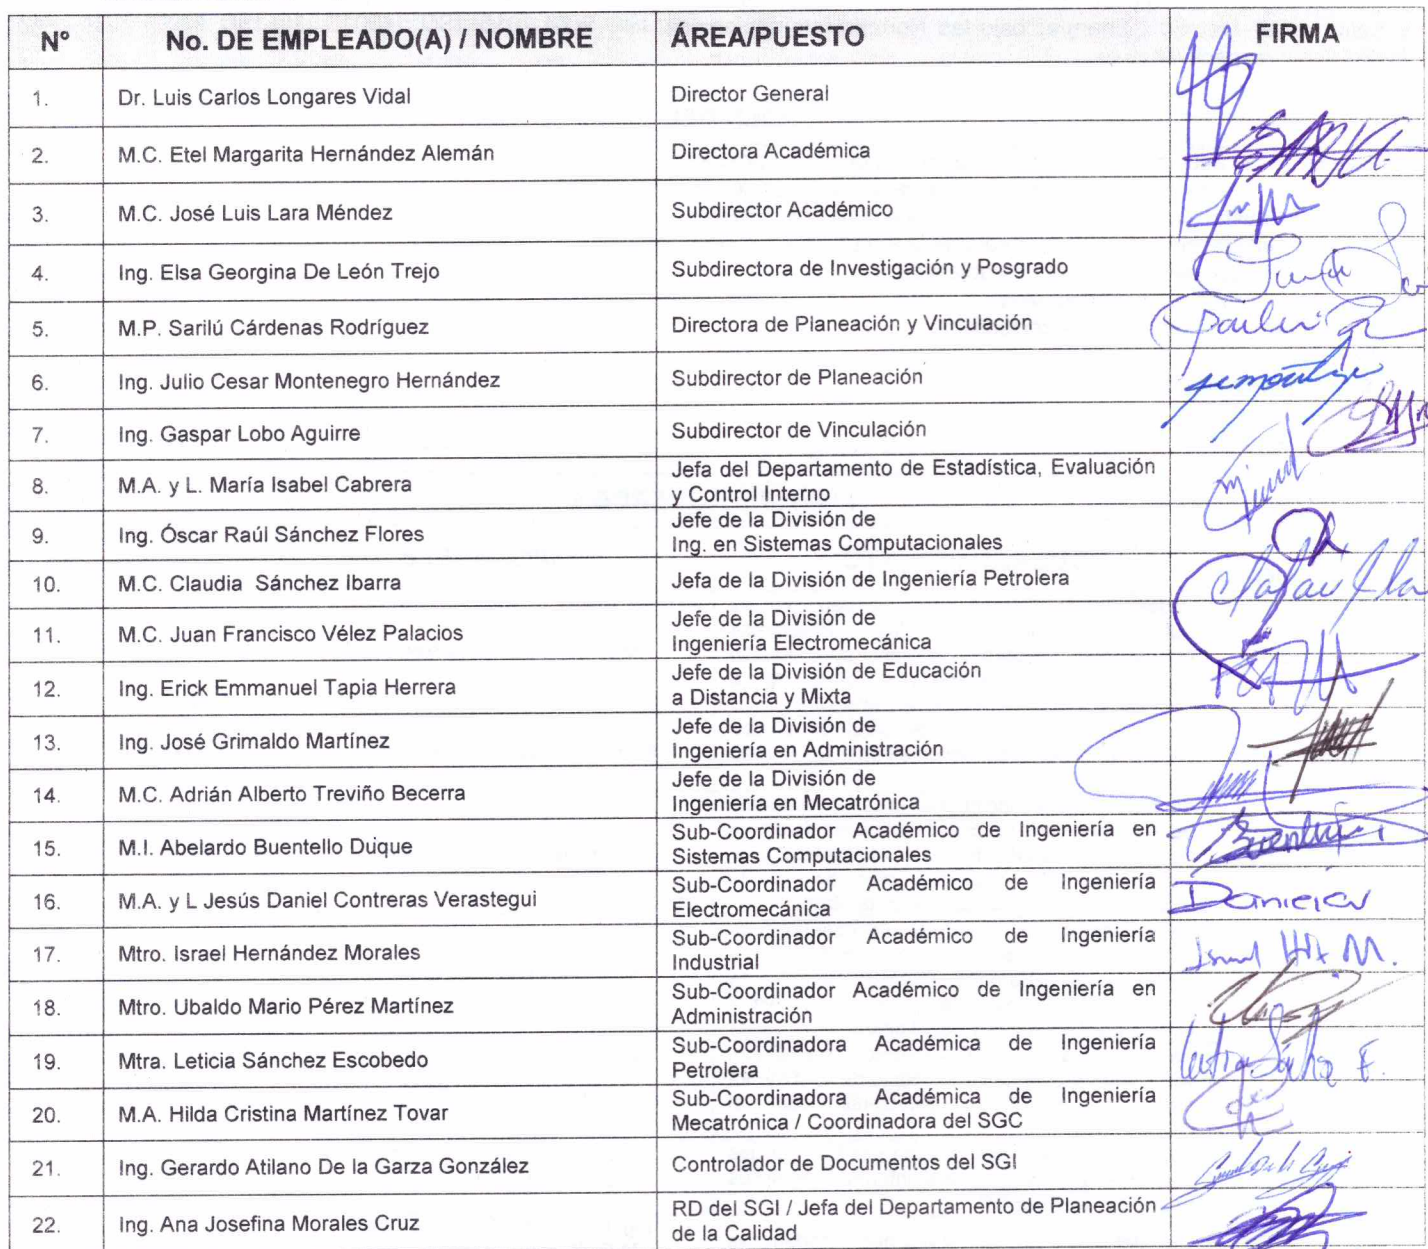 N° No. DE EMPLEADO(A) / NOMBRE ÁREA/PUESTO FIRMA
1. Dr. Luis Carlos Longares Vidal Director General
2. M.C. Etel Margarita Hernández Alemán Directora Académica
3. M.C. José Luis Lara Méndez Subdirector Académico
4. Ing. Elsa Georgina De León Trejo Subdirectora de Investigación y Posgrado
5. M.P. Sarilú Cárdenas Rodríguez Directora de Planeación y Vinculación
6. Ing. Julio Cesar Montenegro Hernández Subdirector de Planeación
7. Ing. Gaspar Lobo Aguirre Subdirector de Vinculación
8. M.A. y L. María Isabel Cabrera Jefa del Departamento de Estadística, Evaluación
y Control Interno
9. Ing. Óscar Raúl Sánchez Flores Jefe de la División de
Ing. en Sistemas Computacionales
10. M.C. Claudia Sánchez Ibarra Jefa de la División de Ingeniería Petrolera
11. M.C. Juan Francisco Vélez Palacios Jefe de la División de
Ingeniería Electromecánica
12. Ing. Erick Emmanuel Tapia Herrera Jefe de la División de Educación
a Distancia y Mixta
13. Ing. José Grimaldo Martínez Jefe de la División de
Ingeniería en Administración
14. M.C. Adrián Alberto Treviño Becerra Jefe de la División de
Ingeniería en Mecatrónica
15. M.I. Abelardo Buentello Duque Sub-Coordinador Académico de Ingeniería en
Sistemas Computacionales
16. M.A. y L Jesús Daniel Contreras Verastegui Sub-Coordinador Académico de Ingeniería
Electromecánica
17. Mtro. Israel Hernández Morales Sub-Coordinador Académico de Ingeniería
Industrial
18. Mtro. Ubaldo Mario Pérez Martínez Sub-Coordinador Académico de Ingeniería en
Administración
19. Mtra. Leticia Sánchez Escobedo Sub-Coordinadora Académica de Ingeniería
Petrolera
20. M.A. Hilda Cristina Martínez Tovar Sub-Coordinadora Académica de Ingeniería
Mecatrónica / Coordinadora del SGC
21. Ing. Gerardo Atilano De la Garza González Controlador de Documentos del SGI
22. Ing. Ana Josefina Morales Cruz RD del SGI / Jefa del Departamento de Planeación
de la Calidad